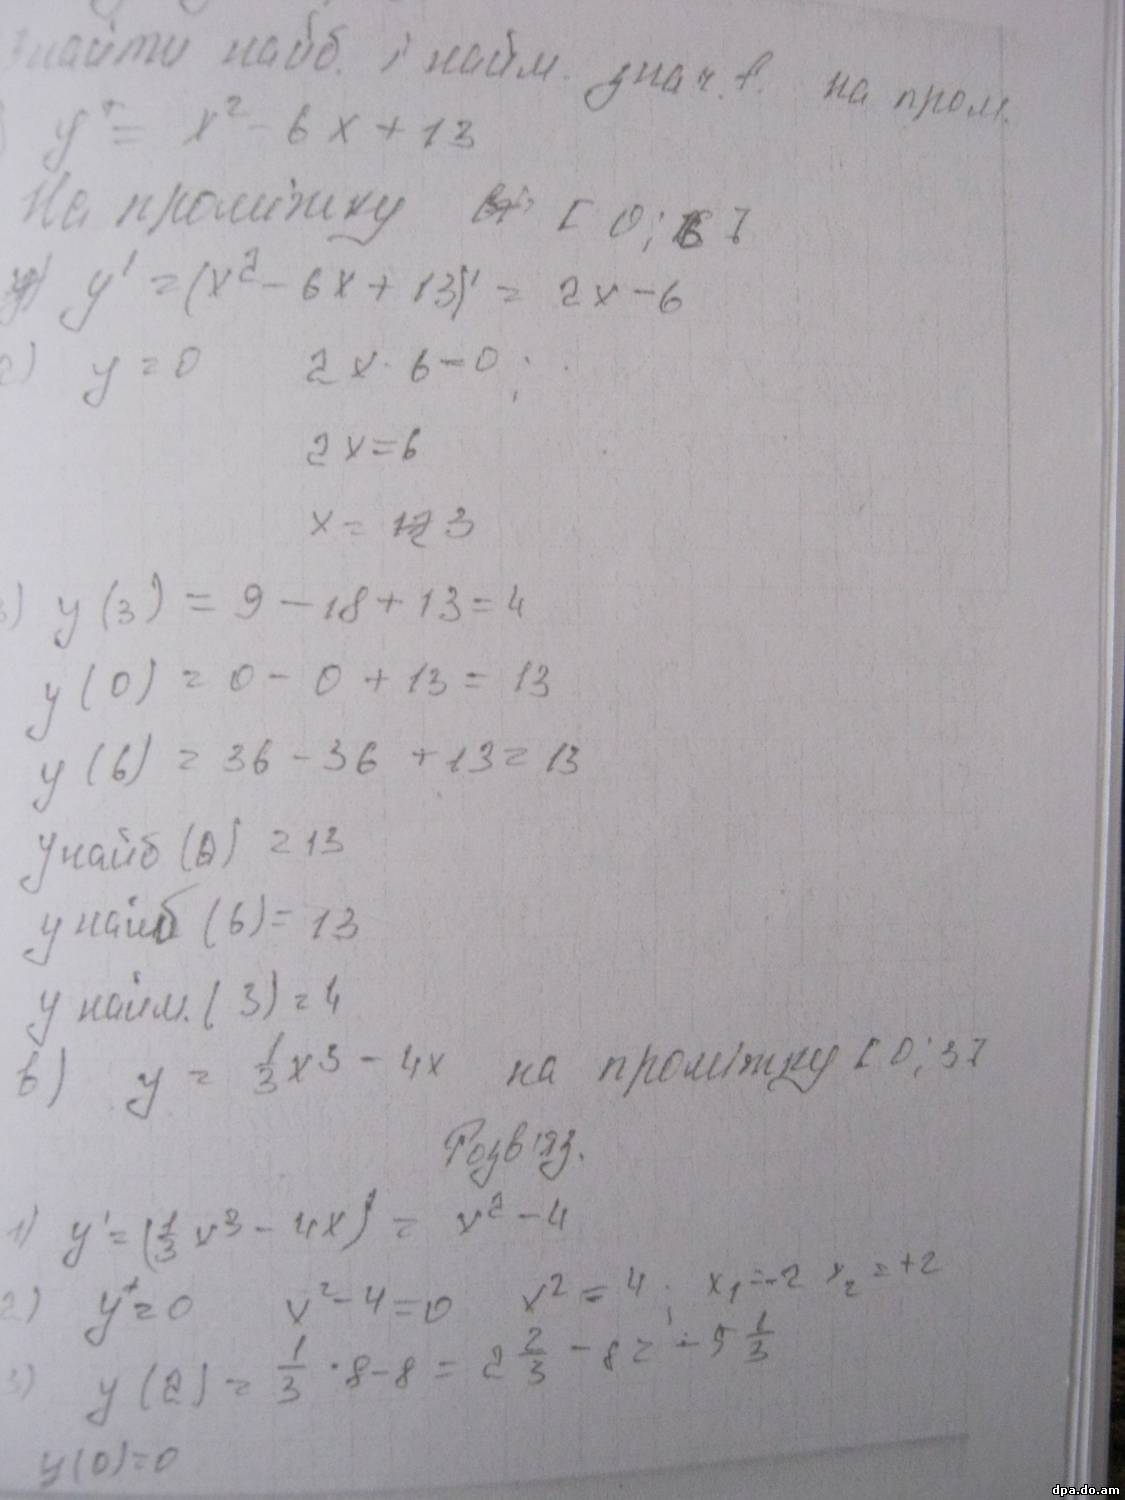 Знайти найб. і найм. знач. f. на пром.
y = x² - 6x + 13
На проміжку [0; 6]
y' = (x² - 6x + 13)' = 2x - 6
2) y = 0 2x - 6 = 0;
2x = 6
x = 3
3) y(3) = 9 - 18 + 13 = 4
y(0) = 0 - 0 + 13 = 13
y(6) = 36 - 36 + 13 = 13
y найб (0) = 13
y найб (6) = 13
y найм. (3) = 4
в) y = 1/3 x³ - 4x на проміжку [0; 3]
Розв'яз.
1) y' = (1/3 x³ - 4x)' = x² - 4
2) y' = 0 x² - 4 = 0 x² = 4; x₁ = -2 x₂ = +2
3) y(2) = 1/3 · 8 - 8 = 2 2/3 - 8 = -5 1/3
y(0) = 0
dpa.do.am